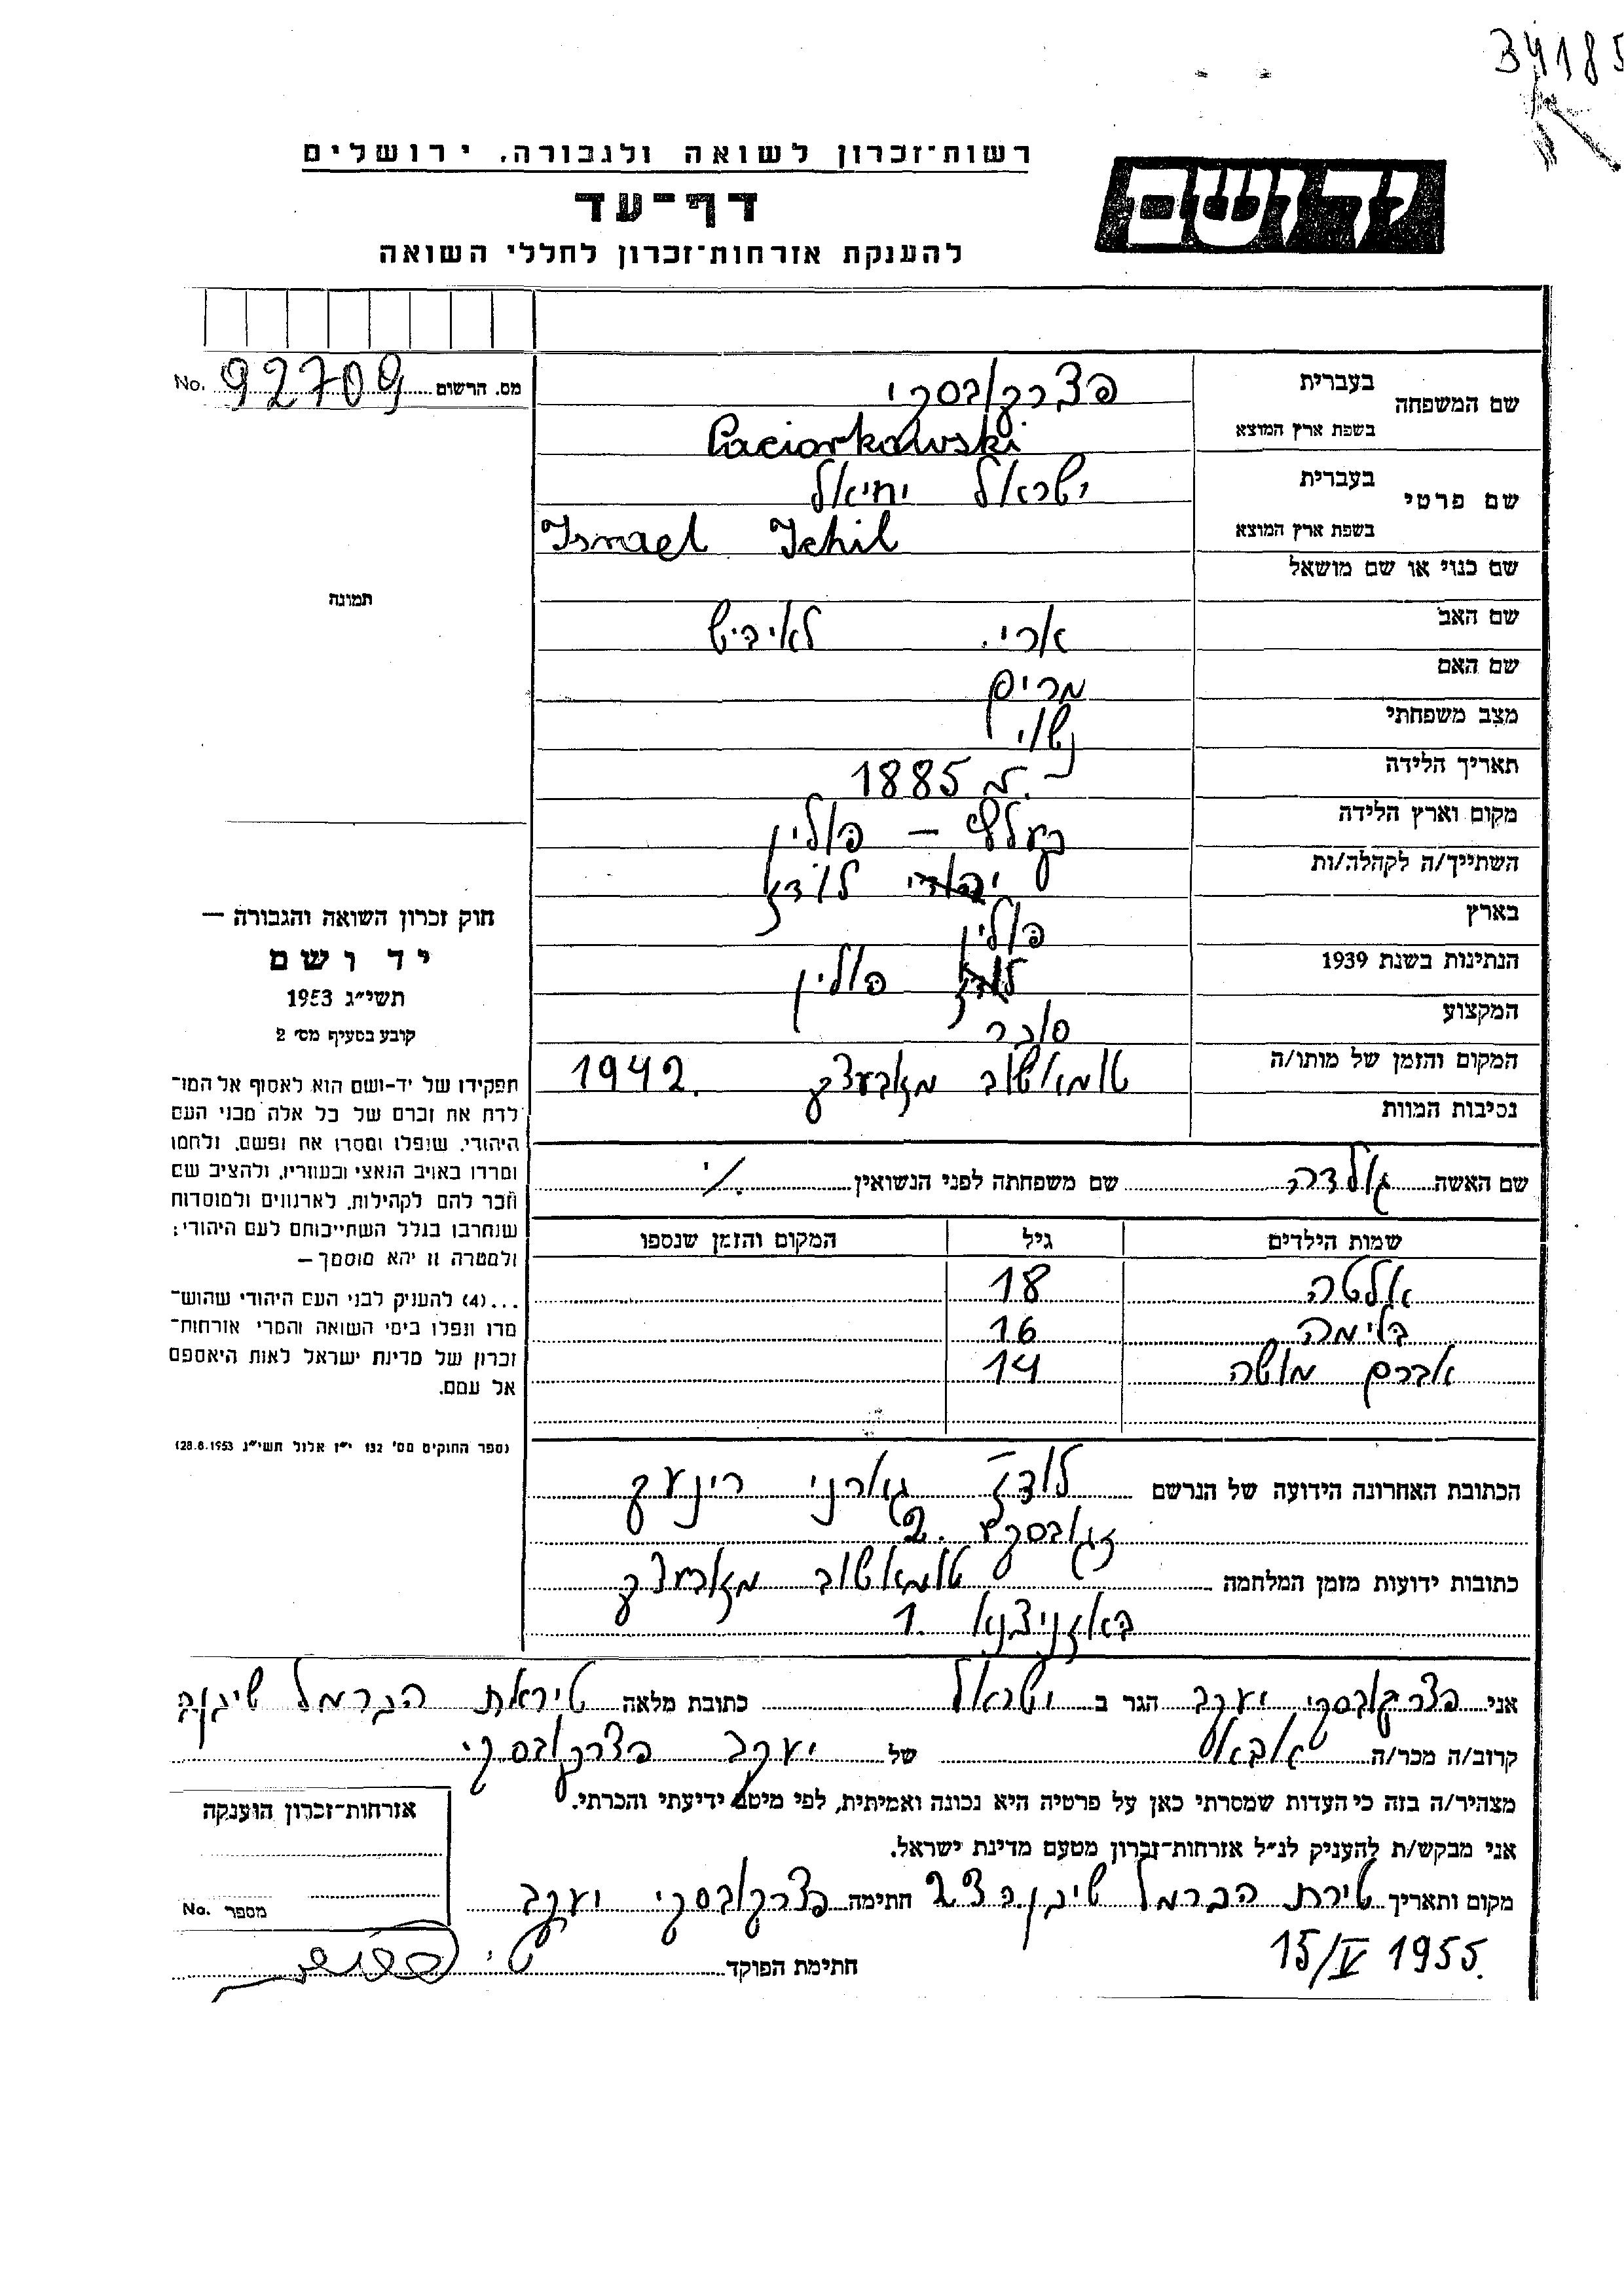 34185
רשות־זכרון לשואה ולגבורה, ירושלים
יד ושם
דף־עד
להענקת אזרחות־זכרון לחללי השואה
מס. הרשום 92709 No.
שם המשפחה בעברית פצרקובסקי
בשפת ארץ המוצא Paciorkowski
שם פרטי בעברית ישראל יחיאל
בשפת ארץ המוצא Israel Ichil
שם כנוי או שם מושאל
תמונה
שם האב ארי. לאיביש
שם האם מרים
מצב משפחתי נשוי
תאריך הלידה 1885
מקום וארץ הלידה – פולין
השתייך/ה לקהלה/ות יהודי לודז
בארץ פולין
הנתינות בשנת 1939 פולין
המקצוע סוחר
המקום והזמן של מותו/ה טומאשוב מזובעצק 1942.
נסיבות המוות
חוק זכרון השואה והגבורה —
יד ושם
תשי״ג 1953
קובע בסעיף מס׳ 2
תפקידו של יד-ושם הוא לאסוף אל המו־
לדת את זכרם של כל אלה מבני העם
היהודי, שנפלו ומסרו את נפשם, נלחמו
ומרדו באויב הנאצי ובעוזריו, ולהציב שם
וזכר להם לקהילות, לארגונים ולמוסדות
שנחרבו בגלל השתייכותם לעם היהודי;
ולמטרה זו יהא מוסמך —
...(4) להעניק לבני העם היהודי שהוש־
מדו ונפלו בימי השואה והמרי אזרחות־
זכרון של מדינת ישראל לאות היאספם
אל עמם.
(ספר החוקים מס׳ 132 י״ז אלול תשי״ג 28.8.1953)
שם האשה גולדה שם משפחתה לפני הנשואין
שמות הילדים גיל המקום והזמן שנספו
אלטה 18
בלימה 16
אברם מושה 14
הכתובת האחרונה הידועה של הנרשם לודז גורני רינעק
2
כתובות ידועות מזמן המלחמה טומאשוב מזובעצק
באזניצנא 1
אני פצרקובסקי יעקב הגר ב ישראל כתובת מלאה טיראת הכרמל שיכון ה
קרוב/ה מכר/ה אבא של יעקב פצרקובסקי
מצהיר/ה בזה כי העדות שמסרתי כאן על פרטיה היא נכונה ואמיתית, לפי מיטב ידיעתי והכרתי.
אני מבקש/ת להעניק לנ״ל אזרחות־זכרון מטעם מדינת ישראל.
מקום ותאריך טירת הכרמל שיכון ה 23 חתימה פצרקובסקי יעקב
15/IV 1955.
חתימת הפוקד
אזרחות־זכרון הוענקה
מספר No.